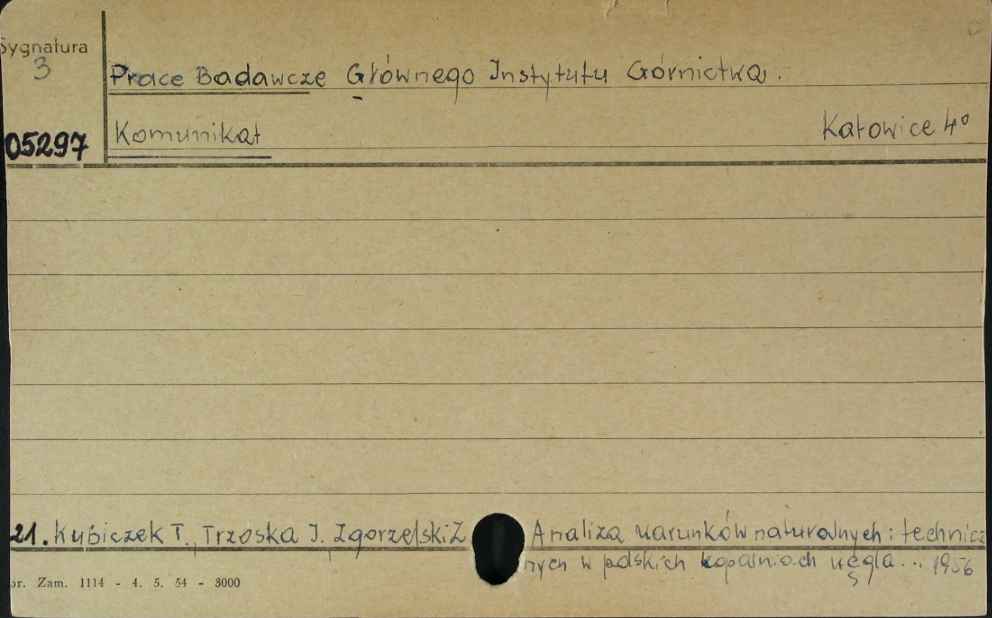 Sygnatura
3
05297
Prace Badawcze Głównego Instytutu Górnictwa.
Komunikat Katowice 4°
21. Kubiczek T., Trzoska J. Zgorzelski Z Analiza warunków naturalnych i technicz
nych w polskich kopalniach węgla... 1956
br. Zam. 1114 - 4. 5. 54 - 3000